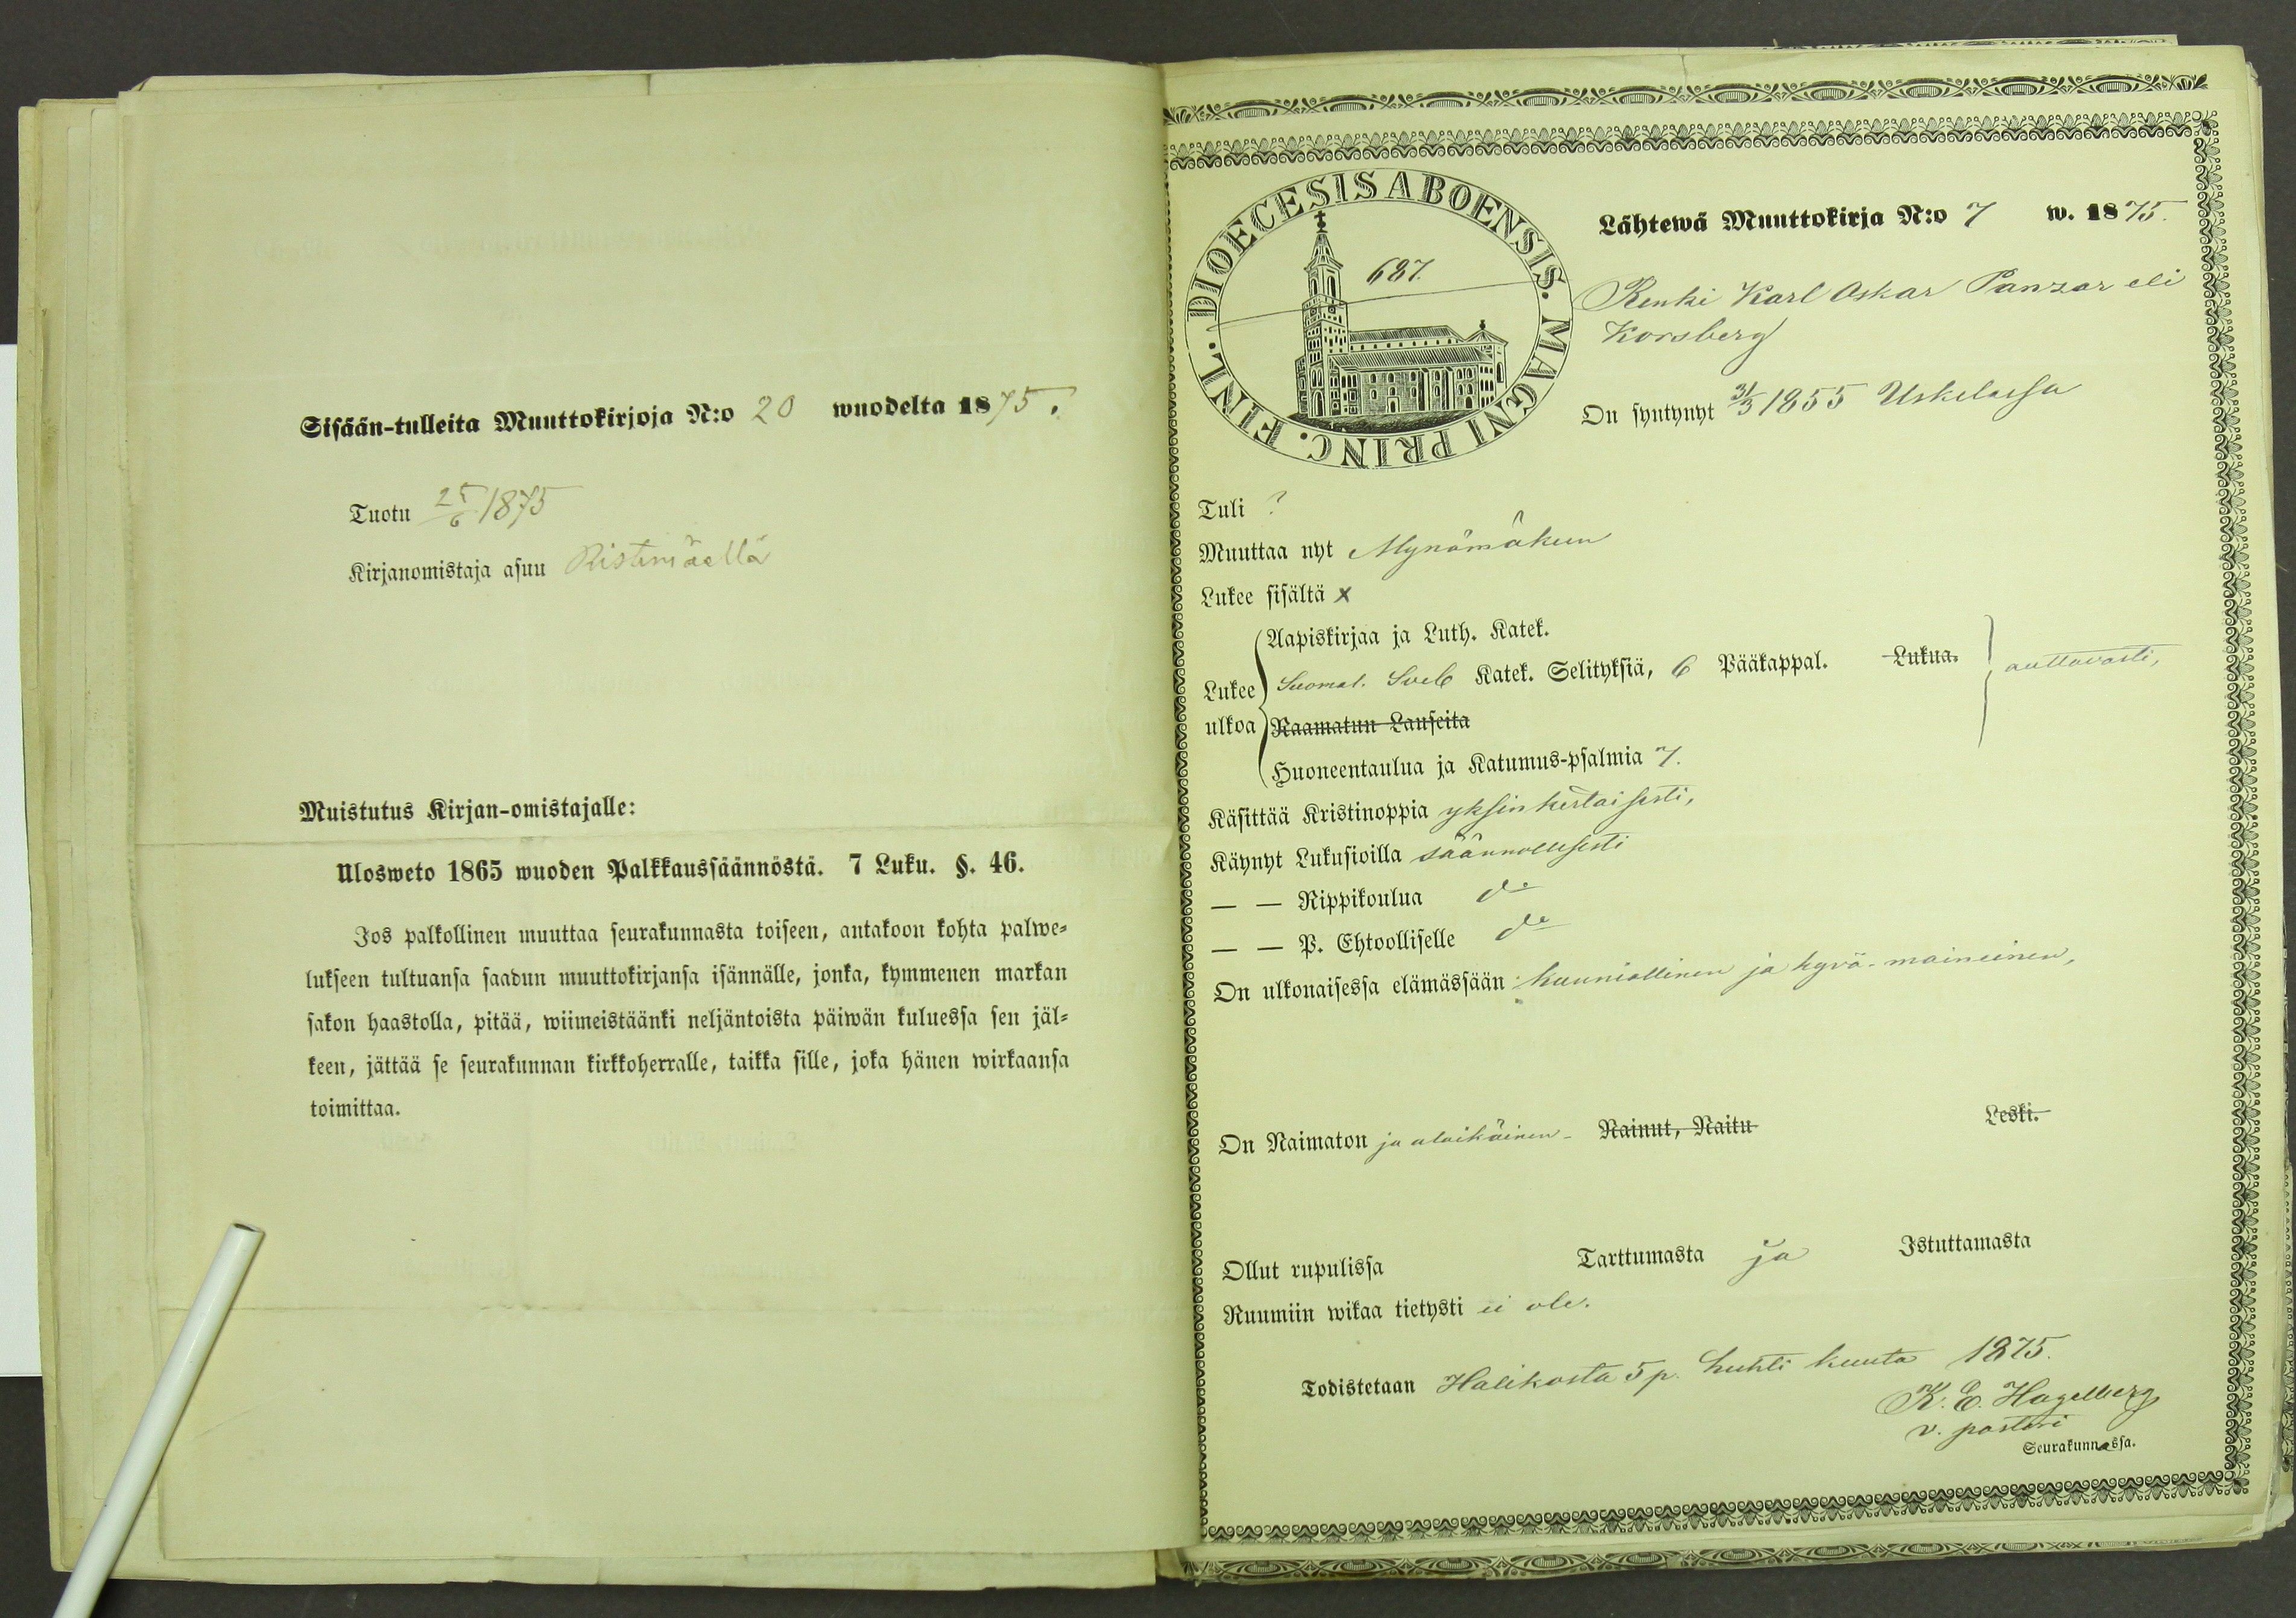 Sisään-tulleita Muuttokirjoja N:o 20 wuodelta 1875.
Tuotu 25/6 1875
Kirjanomistaja asuu Ristimäellä
Muistutus Kirjan-omistajalle:
Ulosweto 1865 wuoden Palkkaussäännöstä. 7 Luku. §. 46.
Jos palkollinen muuttaa seurakunnasta toiseen, antakoon kohta palwe-
lukseen tultuansa saadun muuttokirjansa isännälle, jonka, kymmenen markan
sakon haastolla, pitää, wiimeistäänki neljäntoista päiwän kuluessa sen jäl-
keen, jättää se seurakunnan kirkkoherralle, taikka sille, joka hänen wirkaansa
toimittaa.
DIOECESIS ABOENSIS. MAGNI PRINC. FINL.
687.
Lähtewä Muuttokirja N:o 7 w. 1875.
Renki Karl Oskar Panzar eli
Korsberg
On syntynyt 31/3 1855 Uskelassa
Tuli ?
Muuttaa nyt Mynämäkeen
Lukee sisältä x
Aapiskirjaa ja Luth. Katek.
Lukee Suomal. Sveb Katek. Selityksiä, 6 Pääkappal. Lukua. auttavasti,
ulkoa Raamatun Lauseita
Huoneentaulua ja Katumus-psalmia 7.
Käsittää Kristinoppia yksinkertaisesti,
Käynyt Lukusioilla säännollisesti
— — Rippikoulua do
— — P. Ehtoolliselle do
On ulkonaisessa elämässään kunniallinen ja hyvä-maineinen,
On Naimaton ja alaikäinen - Nainut, Naitu Leski.
Ollut rupulissa Tarttumasta ja Istuttamasta
Ruumiin wikaa tietysti ei ole.
Todistetaan Halikosta 5 p. huhti kuuta 1875.
K. E. Hagelberg
v. pastori
Seurakunnassa.